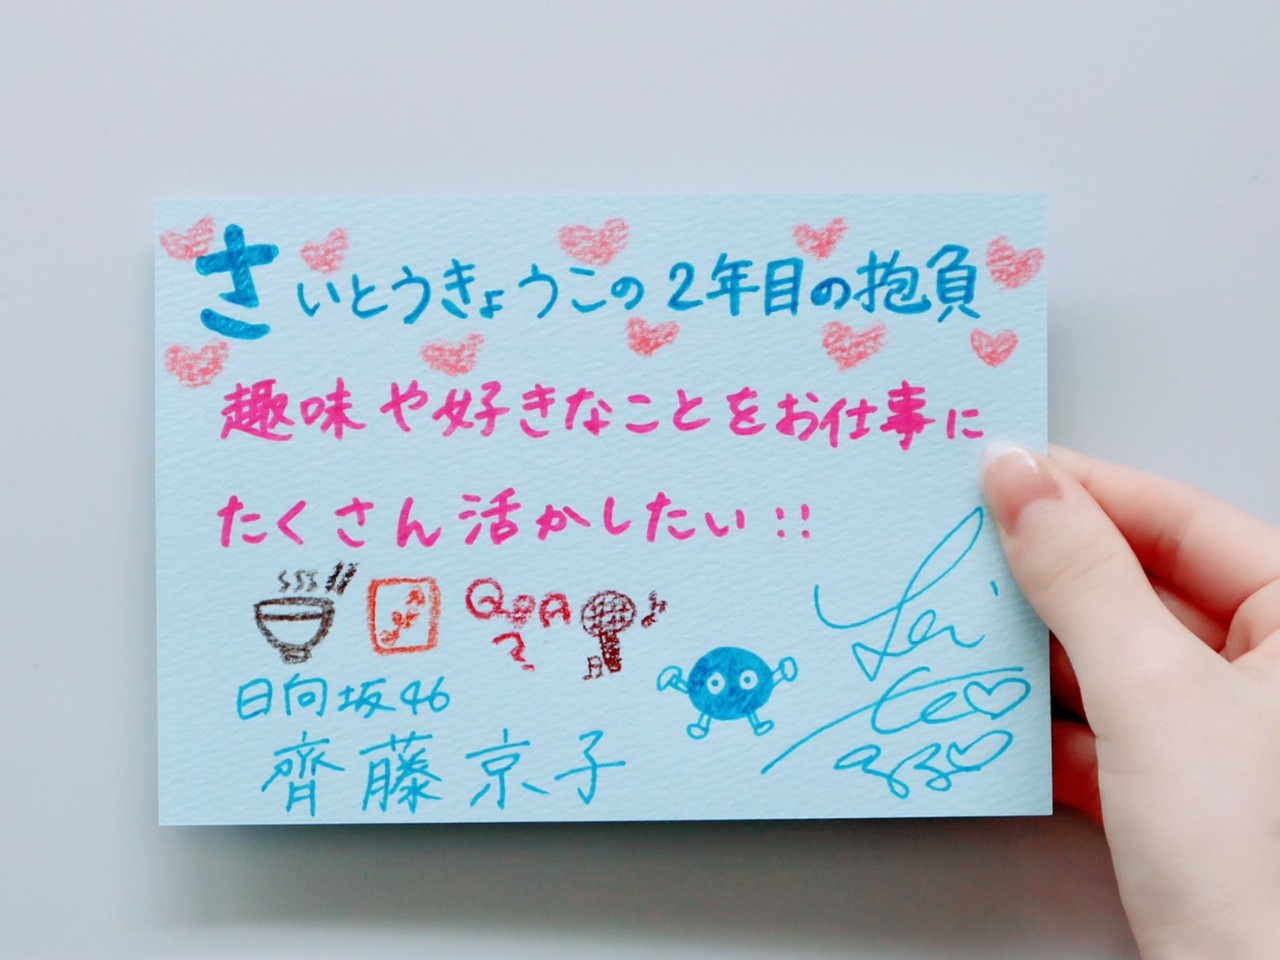 さいとうきょうこの2年目の抱負
趣味や好きなことをお仕事に
たくさん活かしたい!!
Q&A
?
日向坂46
齊藤京子